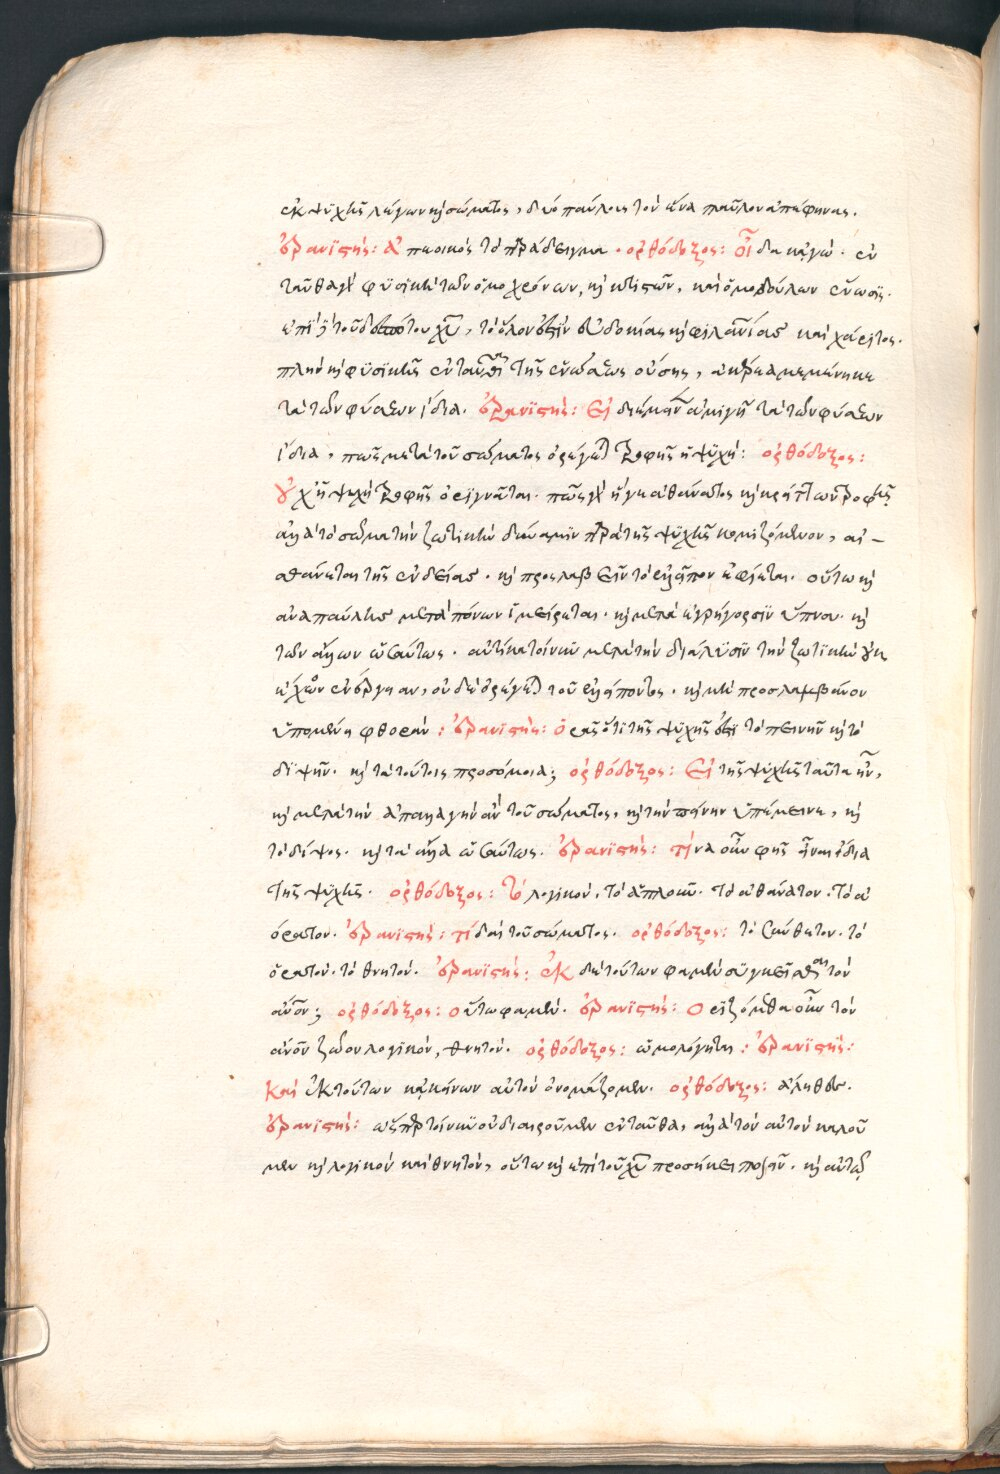 ἐκ ψυχῆς λέγων καὶ σώματος, δύο παύλους τὸν ἕνα παῦλον ἀπέφηνας.
ἐρανιστής: ἀπεοικὸς τὸ παράδειγμα. ὀρθόδοξος: οἶδα κἀγώ. ἐν
ταῦθα γὰρ φυσικὴ τῶν ὁμοχρόνων, καὶ κτιστῶν, καὶ ὁμοδούλων ἕνωσις.
ἐπὶ δὲ τοῦ δεσπότου χῦ, τὸ ὅλον ἐστὶν εὐδοκίας καὶ φιλανίας καὶ χάριτος.
πλὴν καὶ φυσικῆς ἐνταῦθα τῆς ἑνώσεως οὔσης, ἀκέραια μεμένηκε
τὰ τῶν φύσεων ἴδια. ἐρανιστής: Εἰ διέμεινεν ἀμιγῆ τὰ τῶν φύσεων
ἴδια, πῶς μετὰ τοῦ σώματος ὀρέγεται τροφῆς ἡ ψυχή: ὀρθόδοξος:
οὐχ ἡ ψυχὴ τροφῆς ὀριγνᾶται. πῶς γὰρ ἥγε ἀθάνατος καὶ κρείττων τροφῆς;
ἀλλὰ τὸ σῶμα τὴν ζωτικὴν δύναμιν παρὰ τῆς ψυχῆς κομιζόμενον, αἰ-
σθάνεται τῆς ἐνδείας. καὶ προσλαβεῖν τὸ ἐλλεῖπον ἐφίεται. οὕτω καὶ
ἀναπαύλης μετὰ πόνων ἱμείρεται. καὶ μετὰ ἐγρήγορσιν ὕπνου. καὶ
τῶν ἄλλων ὡσαύτως. αὐτίκα τοίνυν μετὰ τὴν διάλυσιν τὴν ζωτικὴν οὐκ
ἔχων ἐνέργειαν, οὐδὲ ὀρέγεται τοῦ ἐλλείποντος. καὶ μὴ προσλαμβάνον
ὑπομένει φθοράν: ἐρανιστής: ὁρᾷς ὅτι τῆς ψυχῆς ἐστι τὸ πεινῆν καὶ τὸ
διψῆν. καὶ τὰ τούτοις προσόμοια; ὀρθόδοξος: Εἰ τῆς ψυχῆς ταῦτα ἦν,
καὶ μετὰ τὴν ἀπαλλαγὴν ἂν τοῦ σώματος, καὶ τὴν πείνην ὑπέμεινε, καὶ
τὸ δίψος. καὶ τὰ ἄλλα ὡσαύτως. ἐρανιστής: τίνα οὖν φῂς εἶναι ἴδια
τῆς ψυχῆς. ὀρθόδοξος: τὸ λογικόν, τὸ ἁπλοῦν. τὸ ἀθάνατον. τὸ ἀ
όρατον. ἐρανιστής: τί δαὶ τοῦ σώματος. ὀρθόδοξος: τὸ σύνθετον. τὸ
ὁρατόν. τὸ θνητόν. ἐρανιστής: ἐκ δὲ τούτων φαμὲν συγκεῖσθαι τὸν
ἄνον; ὀρθόδοξος: οὕτω φαμέν. ἐρανιστής: Οριζόμεθα οὖν τὸν
ἄνον ζῶον λογικὸν, θνητόν. ὀρθόδοξος: ὡμολόγηται: ἐρανιστής:
Καὶ ἐκ τούτων κἀκείνων αὐτὸν ὀνομάζομεν. ὀρθόδοξος: ἀληθές.
ἐρανιστής: ὥσπερ τοίνυν οὐ διαιροῦμεν ἐνταῦθα, ἀλλὰ τὸν αὐτὸν καλοῦ
μεν καὶ λογικὸν καὶ θνητόν, οὕτω καὶ ἐπὶ τοῦ χῦ προσήκει ποιεῖν. καὶ αὐτῷ